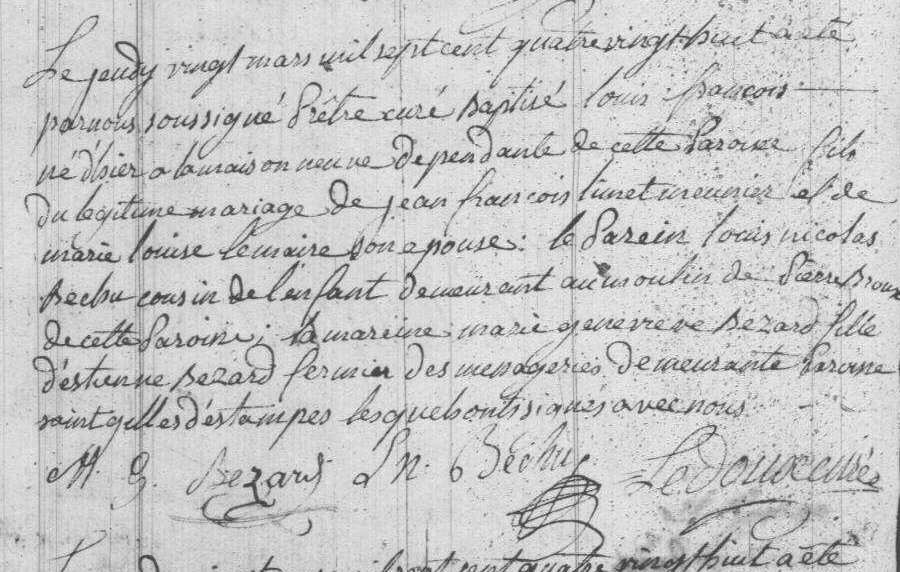 Le jeudy vingt mars mil sept cent quatre vingt huit a eté
par nous soussigné Prêtre curé Baptisé louis françois
né d'hier a la maison neuve Dependante de cette Paroisse fils
du legitime mariage de jean françois linet meunier et de
marie louise lemaire son epouse : le Parein louis nicolas
Bechu cousin de l'enfant demeurant au moulin de Pierre Broux
de cette Paroisse ; la mareine marie genevieve Bezard fille
d'estienne Bezard fermier des messageries demeurante Paroisse
saint gilles d'éstampes lesquels ont signés avec nous
M. G. Bezard L n. Béchu Ledoux curé
vingt huit a eté